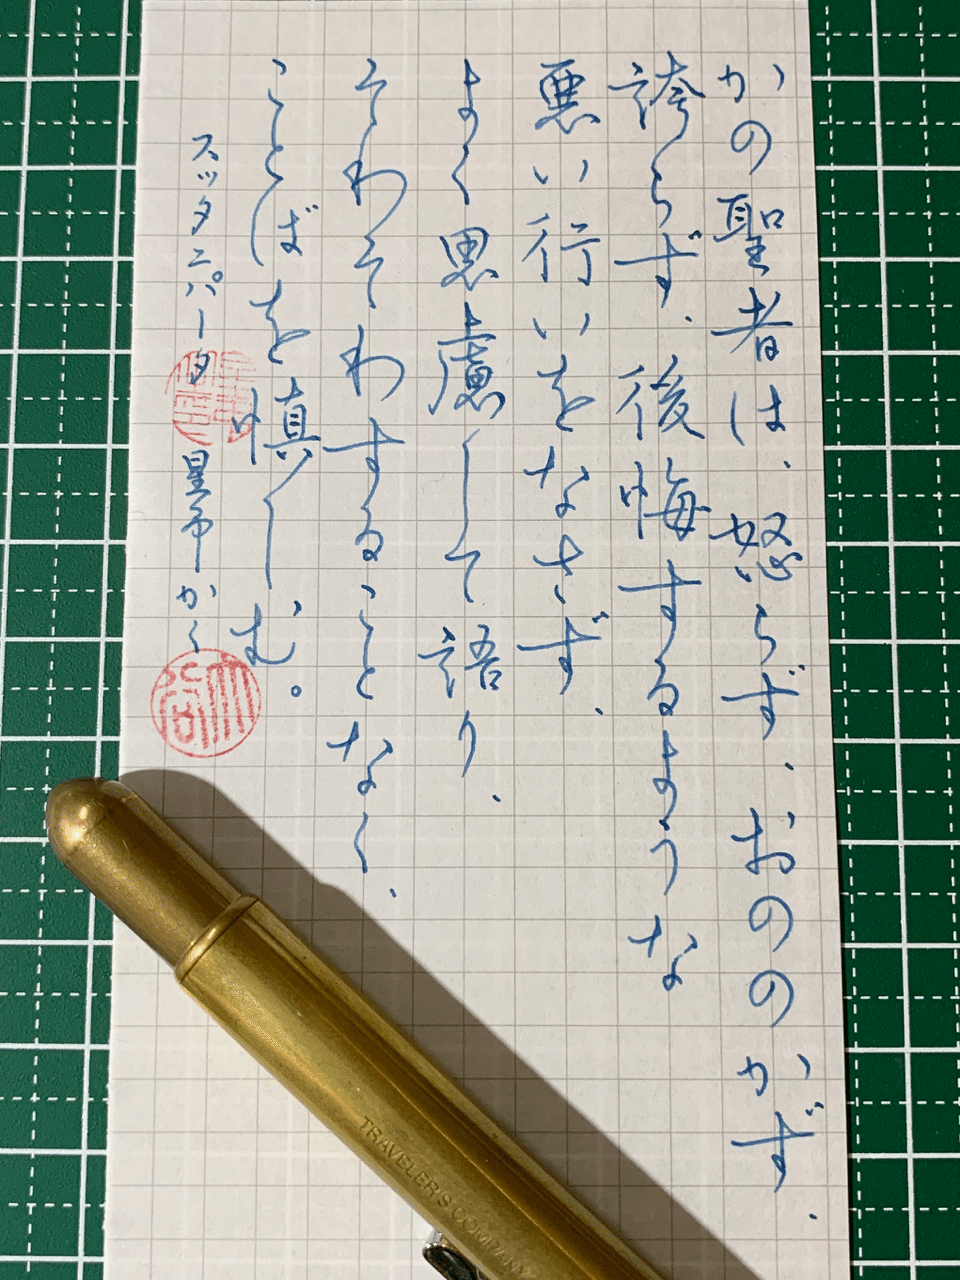 かの聖者は、怒らず、おののかず、
誇らず、後悔するような
悪い行いをなさず、
よく思慮して語り、
そわそわすることなく、
ことばを慎しむ。
スッタニパータ から
TRAVELER'S COMPANY